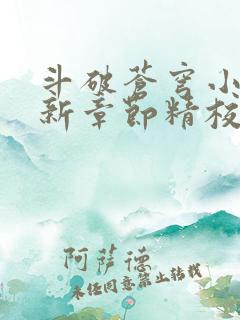 斗破苍穹小
新章节精校
阿萨德
未经同意禁止转载